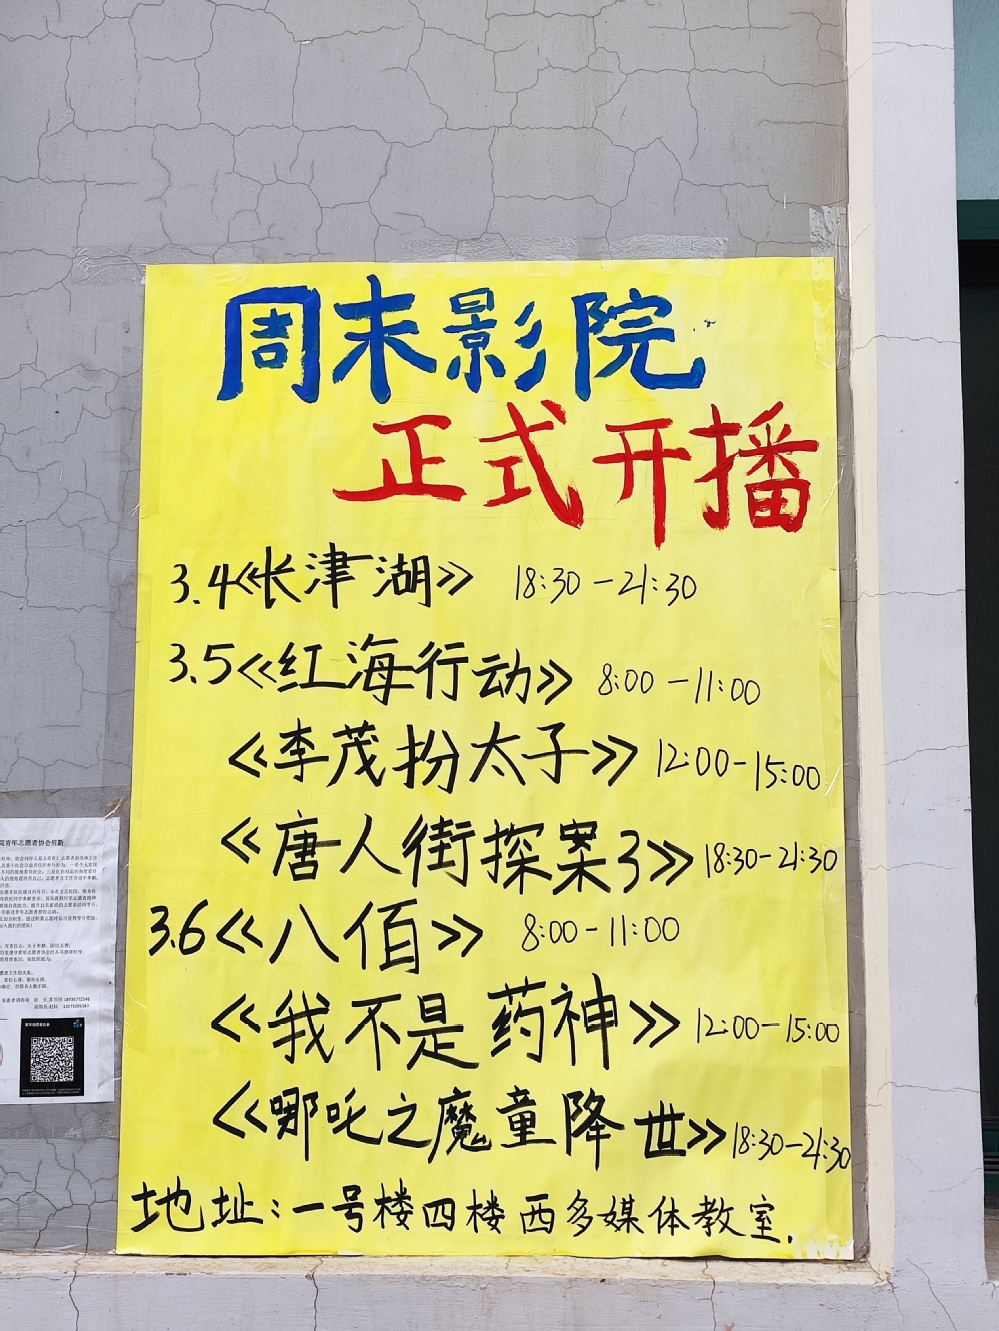 周末影院
正式开播
3.4《长津湖》 18:30-21:30
3.5《红海行动》 8:00-11:00
《李茂扮太子》 12:00-15:00
《唐人街探案3》 18:30-21:30
3.6《八佰》 8:00-11:00
《我不是药神》 12:00-15:00
《哪吒之魔童降世》 18:30-21:30
地址:一号楼四楼西多媒体教室.
院青年志愿者协会招新